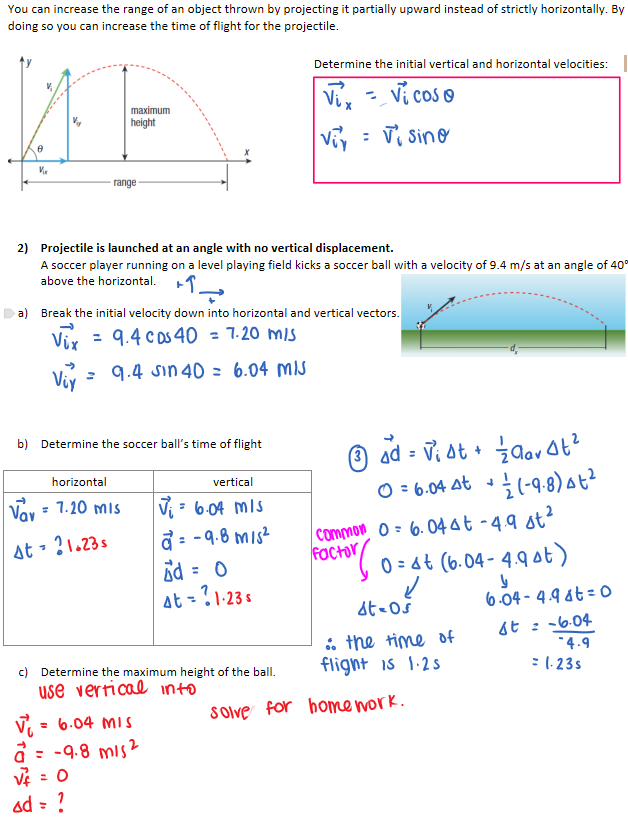 You can increase the range of an object thrown by projecting it partially upward instead of strictly horizontally. By
doing so you can increase the time of flight for the projectile.
Determine the initial vertical and horizontal velocities:
y
vᵢ
vᵢᵧ
θ
vᵢₓ
maximum
height
x
range
v⃗ᵢₓ = v⃗ᵢ cosθ
v⃗ᵢᵧ = v⃗ᵢ sinθ
2) Projectile is launched at an angle with no vertical displacement.
A soccer player running on a level playing field kicks a soccer ball with a velocity of 9.4 m/s at an angle of 40°
above the horizontal. +↑ →+
a) Break the initial velocity down into horizontal and vertical vectors.
v⃗ᵢₓ = 9.4 cos 40 = 7.20 m/s
v⃗ᵢᵧ = 9.4 sin 40 = 6.04 m/s
vᵢ
dₓ
b) Determine the soccer ball's time of flight
horizontal
v⃗av = 7.20 m/s
Δt = ? 1.23s
vertical
v⃗ᵢ = 6.04 m/s
a⃗ = -9.8 m/s²
Δ⃗d = 0
Δt = ? 1.23s
③ Δ⃗d = v⃗ᵢ Δt + ½ aav Δt²
0 = 6.04 Δt + ½ (-9.8) Δt²
common factor
0 = 6.04 Δt - 4.9 Δt²
0 = Δt (6.04 - 4.9 Δt)
Δt = 0s
6.04 - 4.9 Δt = 0
Δt = -6.04 / -4.9
= 1.23s
∴ the time of
flight is 1.2s
c) Determine the maximum height of the ball.
use vertical info
solve for homework.
v⃗ᵢ = 6.04 m/s
a⃗ = -9.8 m/s²
v⃗f = 0
Δd = ?